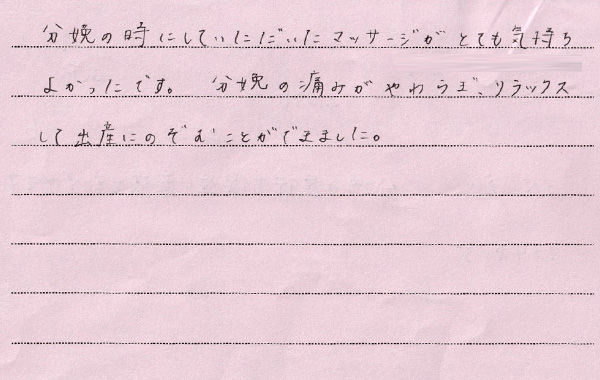 分娩の時にしていただいたマッサージがとても気持ち
よかったです。 分娩の痛みがやわらぎ、リラックス
して出産にのぞむことができました。